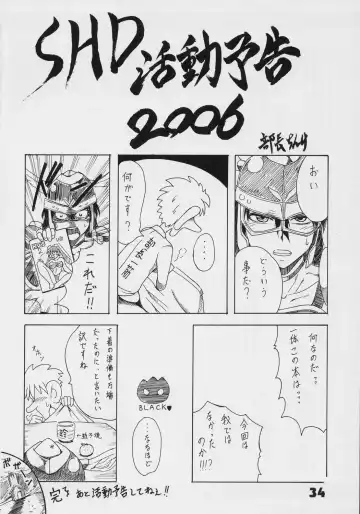 SHD 活動予告
2006
部長さんへ
おい
どういう
事だ?
何がです?
・・・
これだ!!
何なのだ??
一体この本は・・・・
今回は
我では
なかったの
のか!!!?
・・・なるほど
BLACK
下着の準備も万端
だったのに、と言いたい
訳ですね
完
あと活動予告してねぇ!!
34